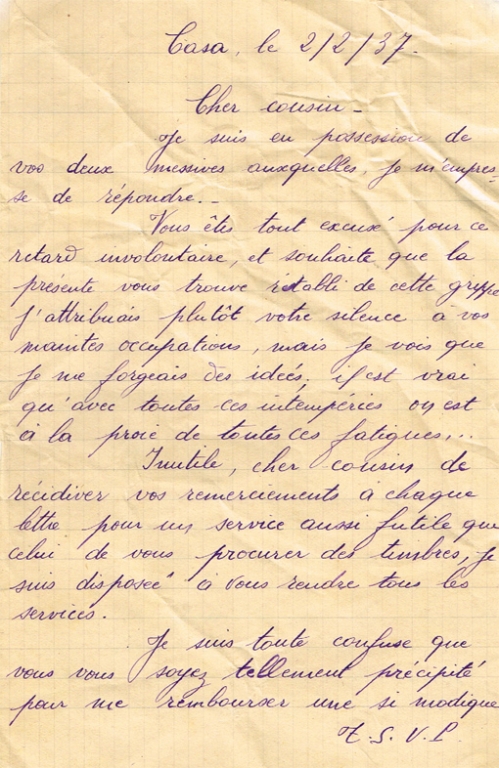 Casa, le 2/2/37.
Cher cousin -
Je suis en possession de
vos deux missives auxquelles, je m'empres-
se de répondre. -
Vous êtes tout excusé pour ce
retard involontaire, et souhaite que la
présente vous trouve rétabli de cette grippe
J'attribuais plutôt votre silence à vos
maintes occupations, mais je vois que
je me forgeais des idées. il est vrai
qu'avec toutes ces intempéries on est
à la proie de toutes ces fatigues...
Inutile, cher cousin de
récidiver vos remerciements à chaque
lettre pour un service aussi futile que
celui de vous procurer des timbres, je
suis disposée à vous rendre tous les
services.
Je suis toute confuse que
vous vous soyez tellement précipité
pour me rembourser une si modique
T. S. V. P.